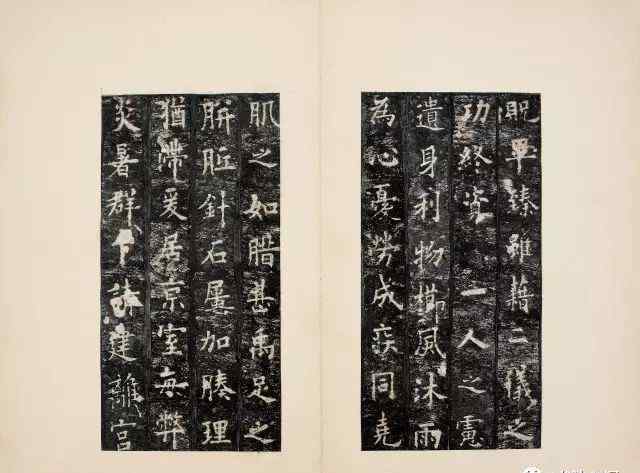 貺畢臻雖藉二儀之
功終資一人之慮
遺身利物櫛風沐雨
為心憂勞成疾同堯
肌之如腊甚禹足之
胼胝針石屢加腠理
猶滯爰居京室每弊
炎暑群下請建離宮